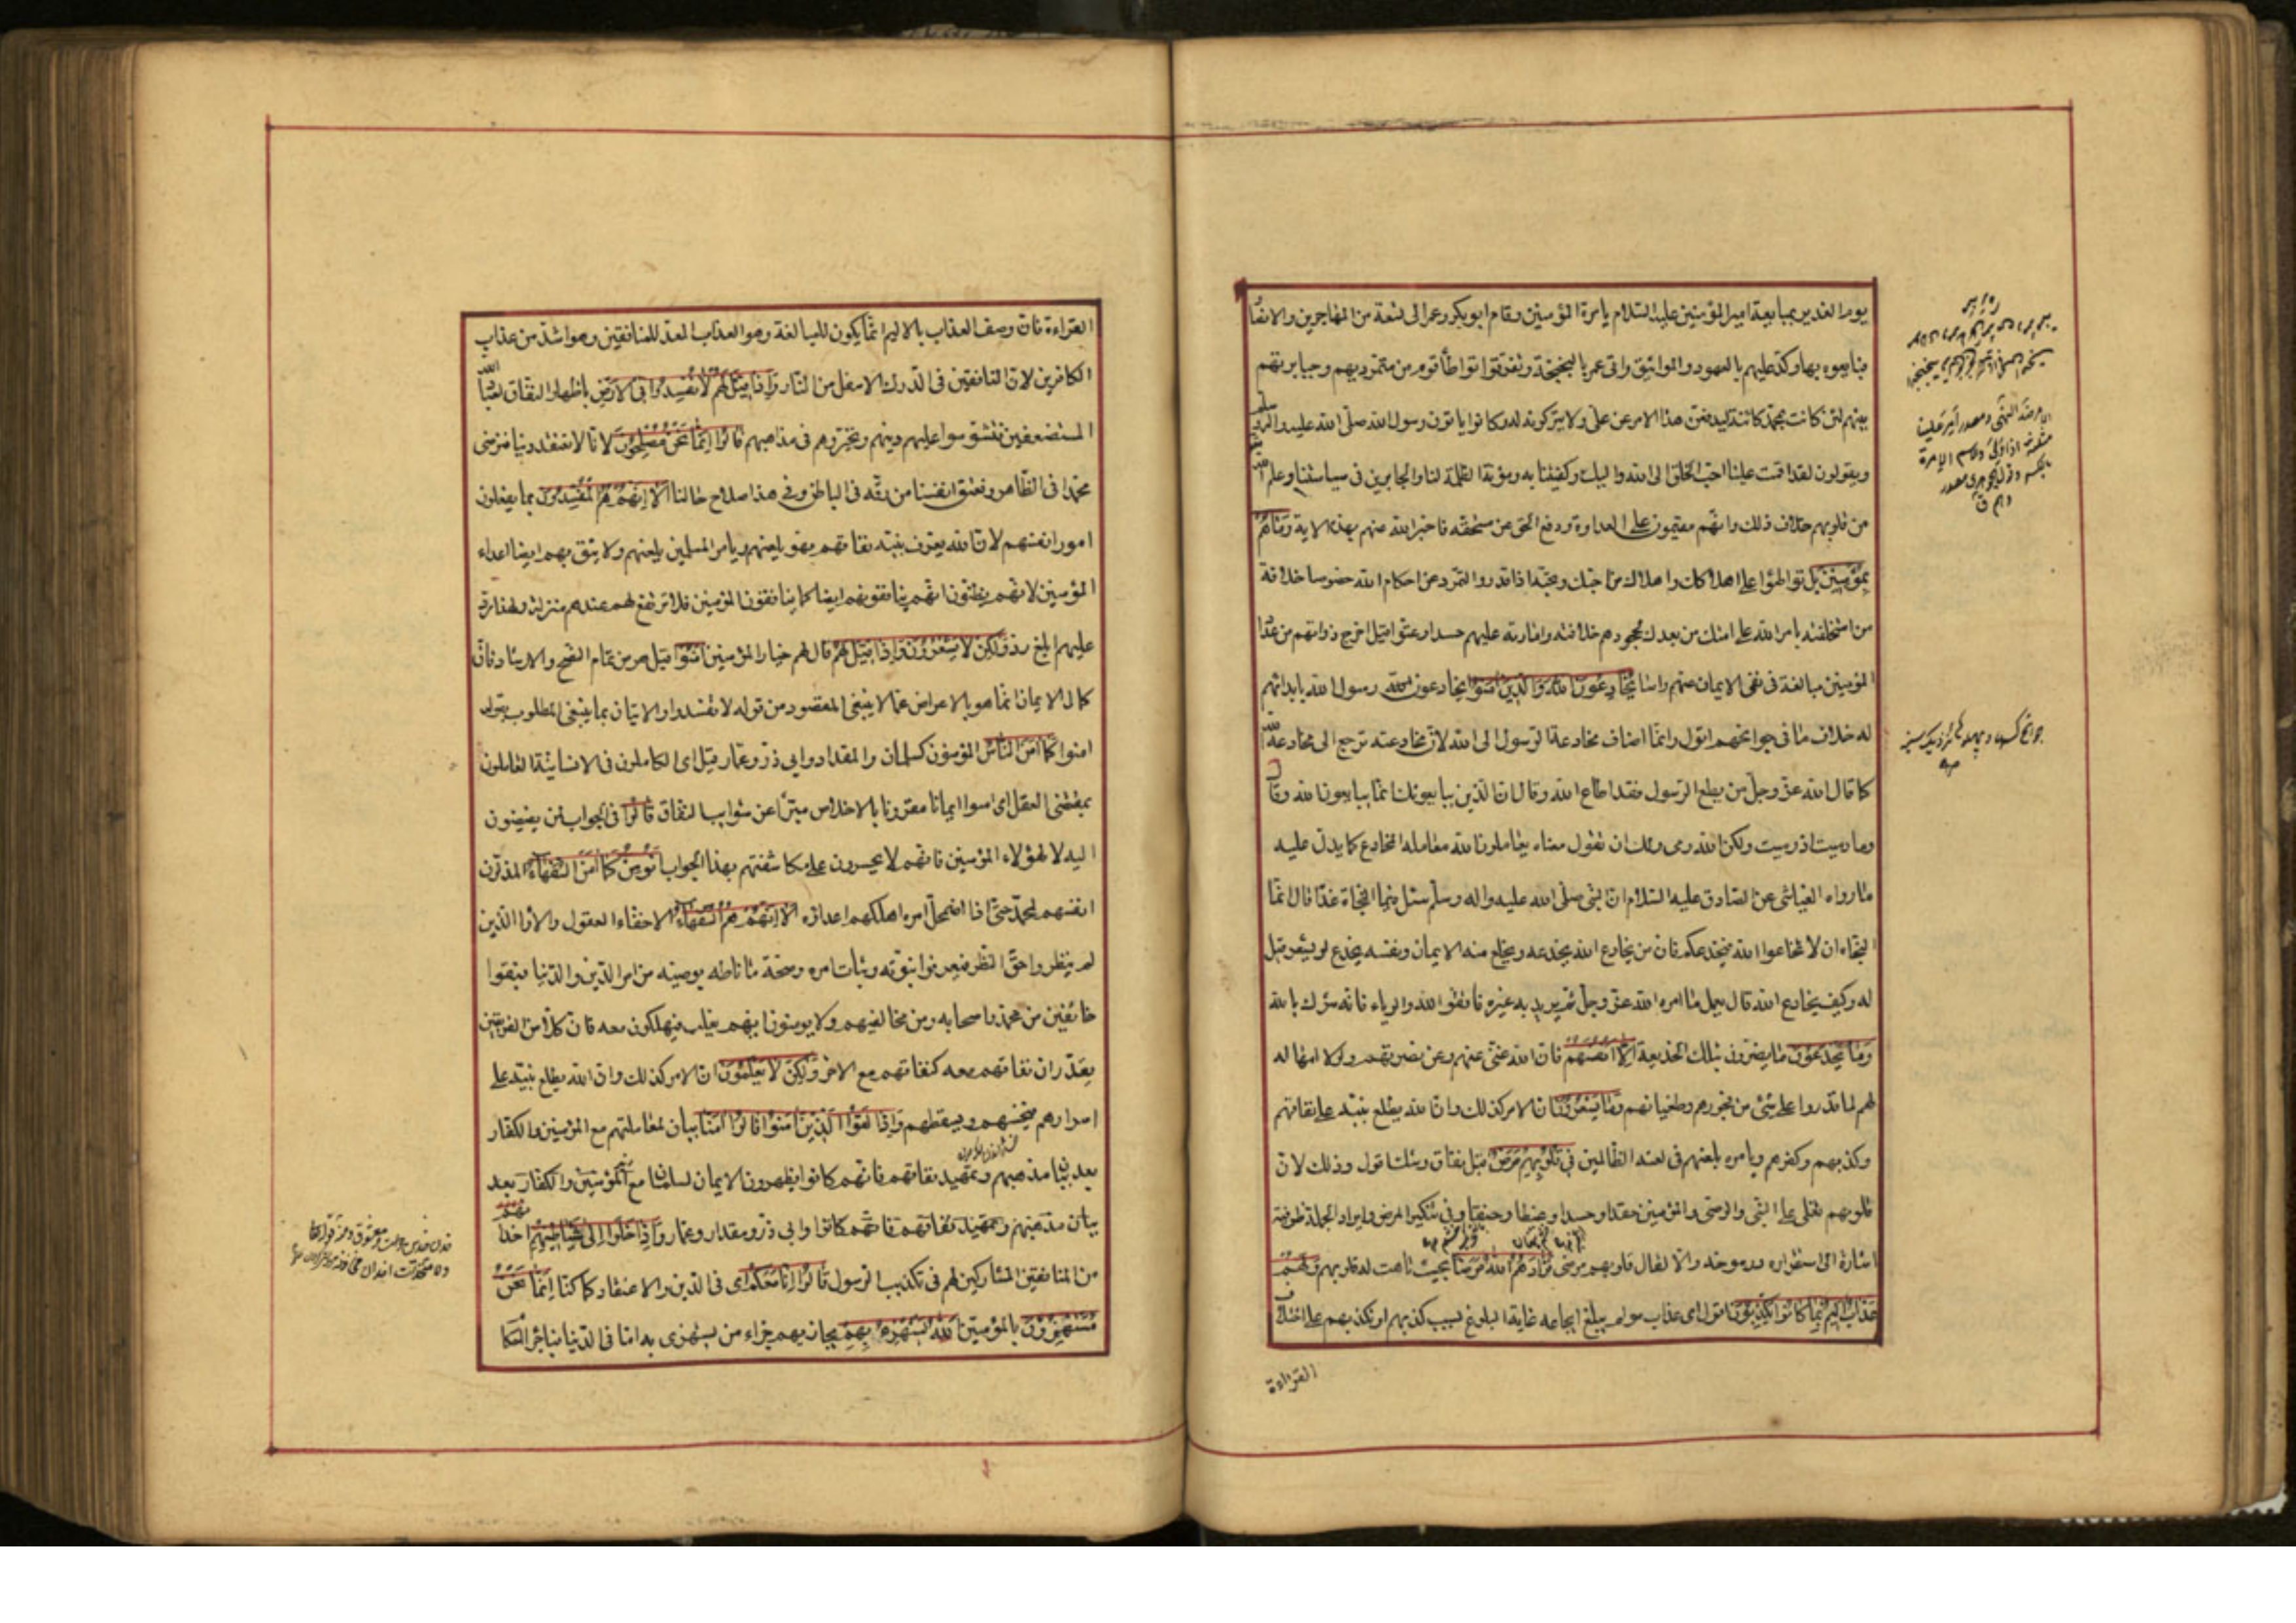 يوم الغدير بمبايعة امير المؤمنين عليه السلام يا مرة المؤمنين وقام ابو بكر وعمر الى تسعة من المهاجرين والانصا
فبايعوه بها وكد عليهم بالعهود والمواثيق واتى عمر بالبخبخة وتفرقوا تواطأ قوم من متمرديهم وجبابرتهم
بينهم لئن كانت بمحمد كائنة ليدفعن هذا الامر عن علي ولا يتركونه له وكانوا ياتون رسول الله صلى الله عليه واله
ويقولون لقد اقمت علينا احب الخلق الى الله واليك وكفيتنا به مؤنة الظلمة لنا والجايرين في سياستنا وعلم الله
من قلوبهم خلاف ذلك وانهم مقيمون على العداوة ودفع الحق عن مستحقه فاخبر الله عنهم بهذه الاية وما هم
بمؤمنين بل تواطئوا على اهلاكك واهلاك من احبك وتحبه اذا قدروا والتمرد عن احكام الله خصوصا خلافة
من استخلفته بامر الله على امتك من بعدك لجحودهم خلافته وامارته عليهم حسدا وعتوا قيل اخرج ذواتهم من عداد
المؤمنين مبالغة في نفي الايمان عنهم راسا يخادعون الله والذين امنوا يخادعون الله رسول الله بابدائهم
له خلاف ما في جوانحهم اقول وانما اضاف مخادعة الرسول الى الله لان مخادعته ترجع الى مخادعة الله
كما قال الله عز وجل من يطع الرسول فقد اطاع الله وقال ان الذين يبايعونك انما يبايعون الله وقال
وما رميت اذ رميت ولكن الله رمى ولك ان تقول معناه يعاملون الله معاملة المخادع كما يدل عليه
ما رواه العياشي عن الصادق عليه السلام ان النبي صلى الله عليه واله وسلم سئل فيما النجاة غدا قال انما
النجاة ان لا تخادعوا الله فيخدعكم فان من يخادع الله يخدعه ويخلع منه الايمان ونفسه يخدع لو يشعر قيل
له وكيف يخادع الله قال يعمل ما امره الله عز وجل ثم يريد به غيره فاتقوا الله والرياء فانه شرك بالله
وما يخدعون ما يضرون بتلك الخديعة الا انفسهم فان الله غني عنهم وعن نصرتهم ولولا امهاله
لهم لما قدروا على شيء من فجورهم وطغيانهم وما يشعرون ان الامر كذلك وان الله يطلع نبيه على نفاقهم
وكذبهم وكفرهم ويامره بلعنهم في لعنة الظالمين في قلوبهم مرض قيل نفاق وشك اقول وذلك لان
قلوبهم تغلي على النبي والوصي والمؤمنين حقدا وحسدا وغيظا وحنقا وفي تنكير المرض وايراد الجملة ظرفية
اشارة الى استقراره ورسوخه والا لقال قلوبهم مرضى فزادهم الله مرضا بحيث تاهت له قلوبهم ولهم
عذاب اليم بما كانوا يكذبون اقول اى عذاب مولم يبلغ ايجاعه غاية البلوغ بسبب كذبهم او تكذيبهم على اختلاف
القراءة
القراءة فان وصف العذاب بالاليم انما يكون للمبالغة وهو العذاب المعد للمنافقين وهو اشد من عذاب
الكافرين لان المنافقين في الدرك الاسفل من النار واذا قيل لهم لا تفسدوا في الارض باظهار النفاق لعباد الله
المستضعفين فتشوشوا عليهم دينهم وتحيروهم في مذاهبهم قالوا انما نحن مصلحون لانا لا نعتقد دينا فنرضى
محمدا في الظاهر ونعتق انفسنا من رقه في الباطن وفي هذا صلاح حالنا الا انهم هم المفسدون بما يفعلون
امور انفسهم لان الله يعرف نبيه نفاقهم فهو يلعنهم ويامر المسلمين بلعنهم ولا يثق بهم ايضا اعداء
المؤمنين لانهم يظنون انهم ينافقونهم ايضا كما ينافقون المؤمنين فلا ترفع لهم عندهم منزلة ولهذا رد
عليهم ابلغ رد ولكن لا يشعرون واذا قيل لهم قال لهم خيار المؤمنين امنوا قيل هو من تمام النصح والارشاد فان
كمال الايمان انما هو بالاعراض عما لا ينبغي المقصود من قوله لا تفسدوا والاتيان بما ينبغي المطلوب بقوله
امنوا كما امن الناس المؤمنون كسلمان والمقداد وابي ذر وعمار قيل اى الكاملون في الانسانية العاملون
بمقتضى العقل اى امنوا ايمانا مقرونا بالاخلاص مبرأ عن شوايب النفاق قالوا في الجواب لمن يفيضون
اليه لا لهؤلاء المؤمنين فانهم لا يجسرون على مكاشفتهم بهذا الجواب انؤمن كما امن السفهاء المذلون
انفسهم لمحمد حتى اذا اضمحل امره اهلكهم اعداؤه الا انهم هم السفهاء الاخفاء العقول والاراء الذين
لم ينظروا حق النظر فيعرفوا نبوته وثبات امره وصحة ما ناطه بوصيه من امر الدين والدنيا فبقوا
خائفين من محمد واصحابه ومن مخالفيهم ولا يؤمنون ايهم يغلب فيهلكون معه فان كلا من الفريقين
يقدر ان نفاقهم معه كنفاقهم مع الاخر ولكن لا يعلمون ان الامر كذلك وان الله يطلع نبيه على
اسرارهم فيخسهم ويسقطهم واذا لقوا الذين امنوا قالوا امنا بيان لمعاملتهم مع المؤمنين والكفار
بعد بيان مذهبهم وتمهيد نفاقهم فانهم كانوا يظهرون الايمان لسلمان مع المؤمنين والكفار بعد
بيان مذهبهم وتمهيد نفاقهم فانهم كانوا وابي ذر ومقداد وعمار واذا خلوا الى شياطينهم اخدا
من المنافقين المشاركين لهم في تكذيب الرسول قالوا انا معكم اى في الدين والاعتقاد كما كنا انما نحن
مستهزؤن بالمؤمنين الله يستهزئ بهم يجازيهم جزاء من يستهزى به اما في الدنيا فباجراء احكا